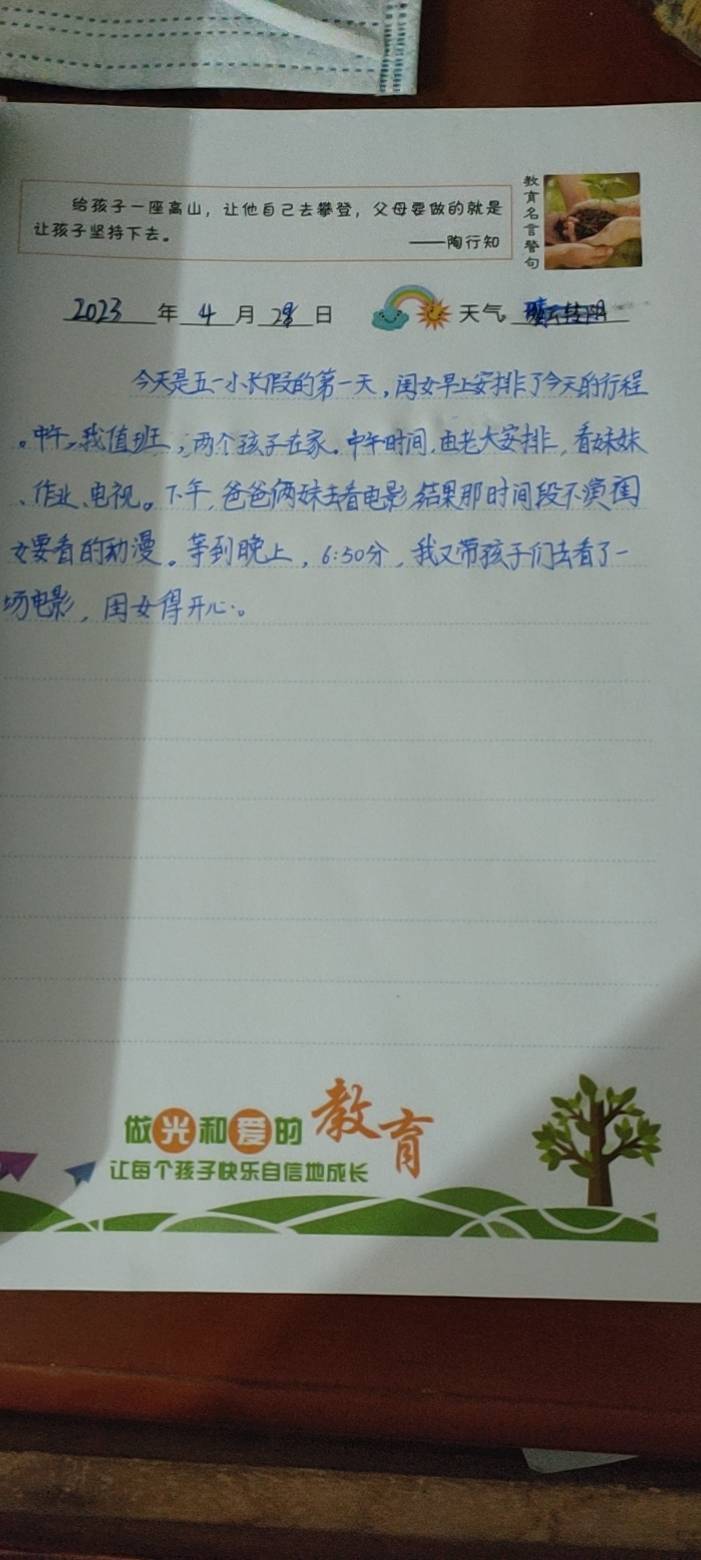 给孩子一座高山，让他自己去攀登，父母要做的就是
让孩子坚持下去。
——陶行知
教育名言警句
2023年4月28日 天气
今天是五一小长假的第一天，闺女早上安排了今天的行程
。中午，我值班，两个孩子在家。中午时间，由老大安排，看妹妹
、作业、电视。下午，爸爸俩妹去看电影，结果那时间段不演闺
女要看的动漫。等到晚上，6:50分，我又带孩子们去看了一
场电影，闺女得开心。
做光和爱的教育
让每个孩子快乐自信地成长